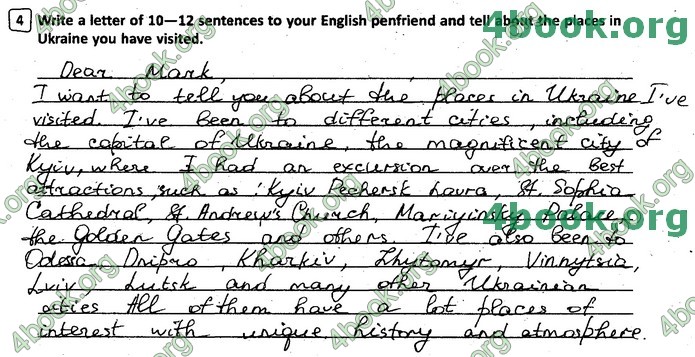 4 Write a letter of 10—12 sentences to your English penfriend and tell about the places in
Ukraine you have visited.
Dear Mark,
I want to tell you about the places in Ukraine I've
visited. I've been to different cities, including
the capital of Ukraine, the magnificent city of
Kyiv, where I had an excursion over the best
attractions, such as: Kyiv Pechersk Lavra, St. Sophia
Cathedral, St. Andrew's Church, Mariyinsky Palace,
the Golden Gates and others. I've also been to
Odessa, Dnipro, Kharkiv, Zhytomyr, Vinnytsia,
Lviv, Lutsk and many other Ukrainian
cities All of them have a lot places of
interest with unique history and atmosphere.
4book.org
4book.org
4book.org